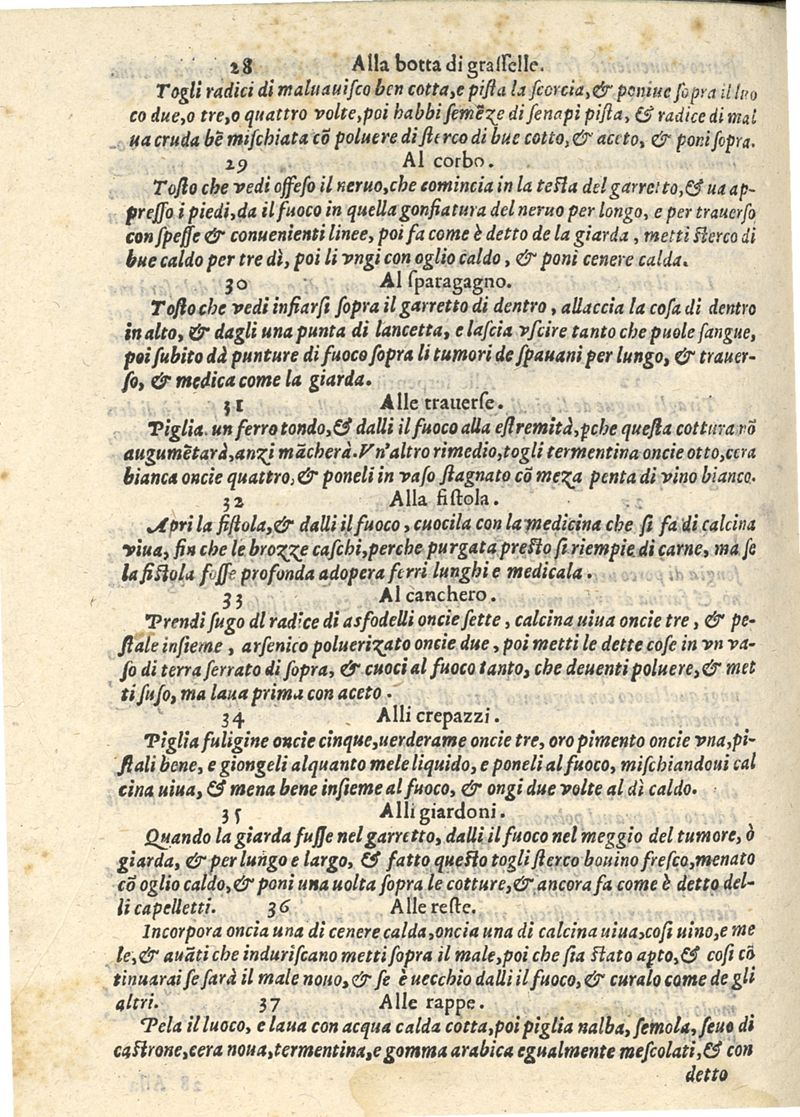 28 Alla botta di grasselle.
Togli radici di maluauisco ben cotta, e pista la scorcia, & poniue sopra il luo
co due, o tre, o quattro volte, poi habbi semẽze di senapi pista, & radice di mal
ua cruda bẽ mischiata cõ poluere di sterco di bue cotto, & aceto, & poni sopra.
29 Al corbo.
Tosto che vedi offeso il neruo, che comincia in la testa del garretto, & ua ap-
presso i piedi, da il fuoco in quella gonfiatura del neruo per longo, e per trauerso
con spesse & conuenienti linee, poi fa come è detto de la giarda, metti sterco di
bue caldo per tre dì, poi li vngi con oglio caldo, & poni cenere calda.
30 Al sparagagno.
Tosto che vedi infiarsi sopra il garretto di dentro, allaccia la cosa di dentro
in alto, & dagli una punta di lancetta, e lascia vscire tanto che puole sangue,
poi subito dà punture di fuoco sopra li tumori de spauani per lungo, & trauer-
so, & medica come la giarda.
31 Alle trauerse.
Piglia un ferro tondo, & dalli il fuoco alla estremità, pche questa cottura nõ
augumẽtarà, anzi mãcherà. Vn'altro rimedio, togli termentina oncie otto, cera
bianca oncie quattro, & poneli in vaso stagnato cõ meza penta di vino bianco.
32 Alla fistola.
Apri la fistola, & dalli il fuoco, cuocila con la medicina che si fa di calcina
viua, fin che le brozze caschi, perche purgata presto si riempie di carne, ma se
la fistola fosse profonda adopera ferri lunghi e medicala.
33 Al canchero.
Prendi sugo dl radice di asfodelli oncie sette, calcina uiua oncie tre, & pe-
stale insieme, arsenico poluerizato oncie due, poi metti le dette cose in vn va-
so di terra serrato di sopra, & cuoci al fuoco tanto, che deuenti poluere, & met
ti suso, ma laua prima con aceto.
34 Alli crepazzi.
Piglia fuligine oncie cinque, uerderame oncie tre, oro pimento oncie vna, pi-
stali bene, e giongeli alquanto mele liquido, e poneli al fuoco, mischiandoui cal
cina uiua, & mena bene insieme al fuoco, & ongi due volte al dì caldo.
35 Alli giardoni.
Quando la giarda fusse nel garretto, dalli il fuoco nel meggio del tumore, ò
giarda, & per lungo e largo, & fatto questo togli sterco bouino fresco, menato
cõ oglio caldo, & poni una uolta sopra le cotture, & ancora fa come è detto del-
li capelletti. 36 Alle reste.
Incorpora oncia una di cenere calda, oncia una di calcina uiua, cosi uino, e me
le, & auãti che induriscano metti sopra il male, poi che sia stato apto, & cosi cõ
tinuarai se sarà il male nouo, & se è uecchio dalli il fuoco, & curalo come de gli
altri. 37 Alle rappe.
Pela il luoco, e laua con acqua calda cotta, poi piglia nalba, semola, seuo di
castrone, cera noua, termentina, e gomma arabica egualmente mescolati, & con
detto